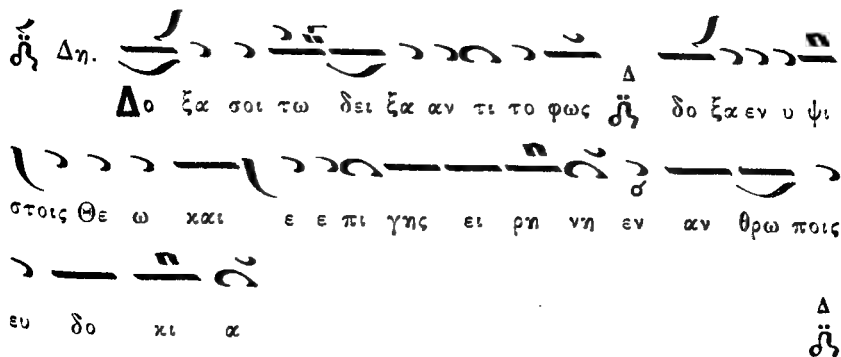 Δη.
Δο ξα σοι τω δει ξα αν τι το φως Δ δο ξα εν υ ψι
στοις Θε ω και ε ε πι γης ει ρη νη εν αν θρω ποις
ευ δο κι α
Δ